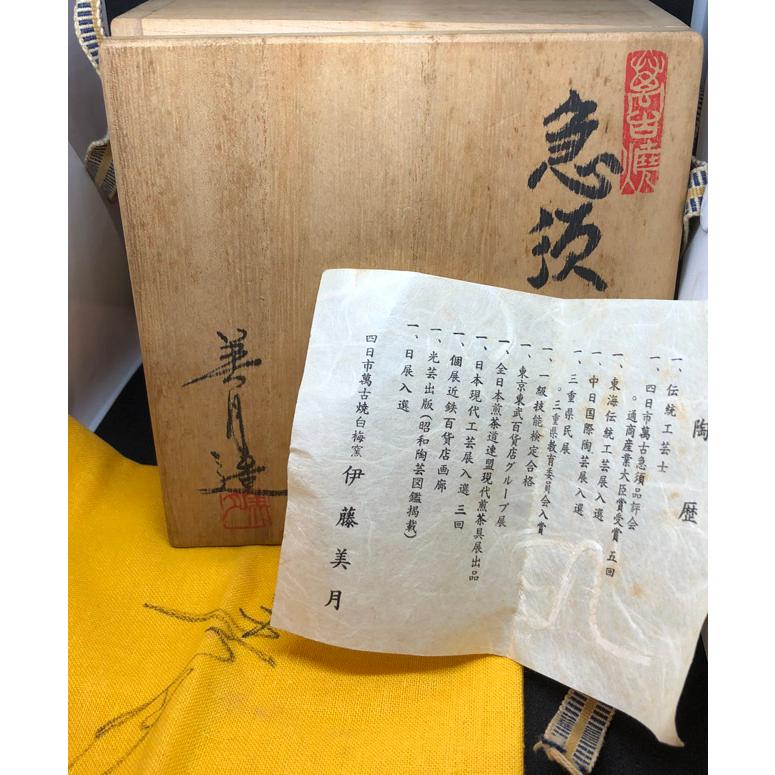 萬古焼
急須
美月造
陶歴
一、伝統工芸士
一、四日市萬古急須品評会
。通商産業大臣賞受賞 五回
一、東海伝統工芸展入選
一、中日国際陶芸展入選
一、三重県民展
。三重県教育委員会入賞
一、一級技能検定合格
一、東京東武百貨店グループ展
一、全日本煎茶道連盟現代煎茶具展出品
一、日本現代工芸展入選 三回
一、個展近鉄百貨店画廊
一、光芸出版(昭和陶芸図鑑掲載)
一、日展入選
四日市萬古焼白梅窯 伊藤美月